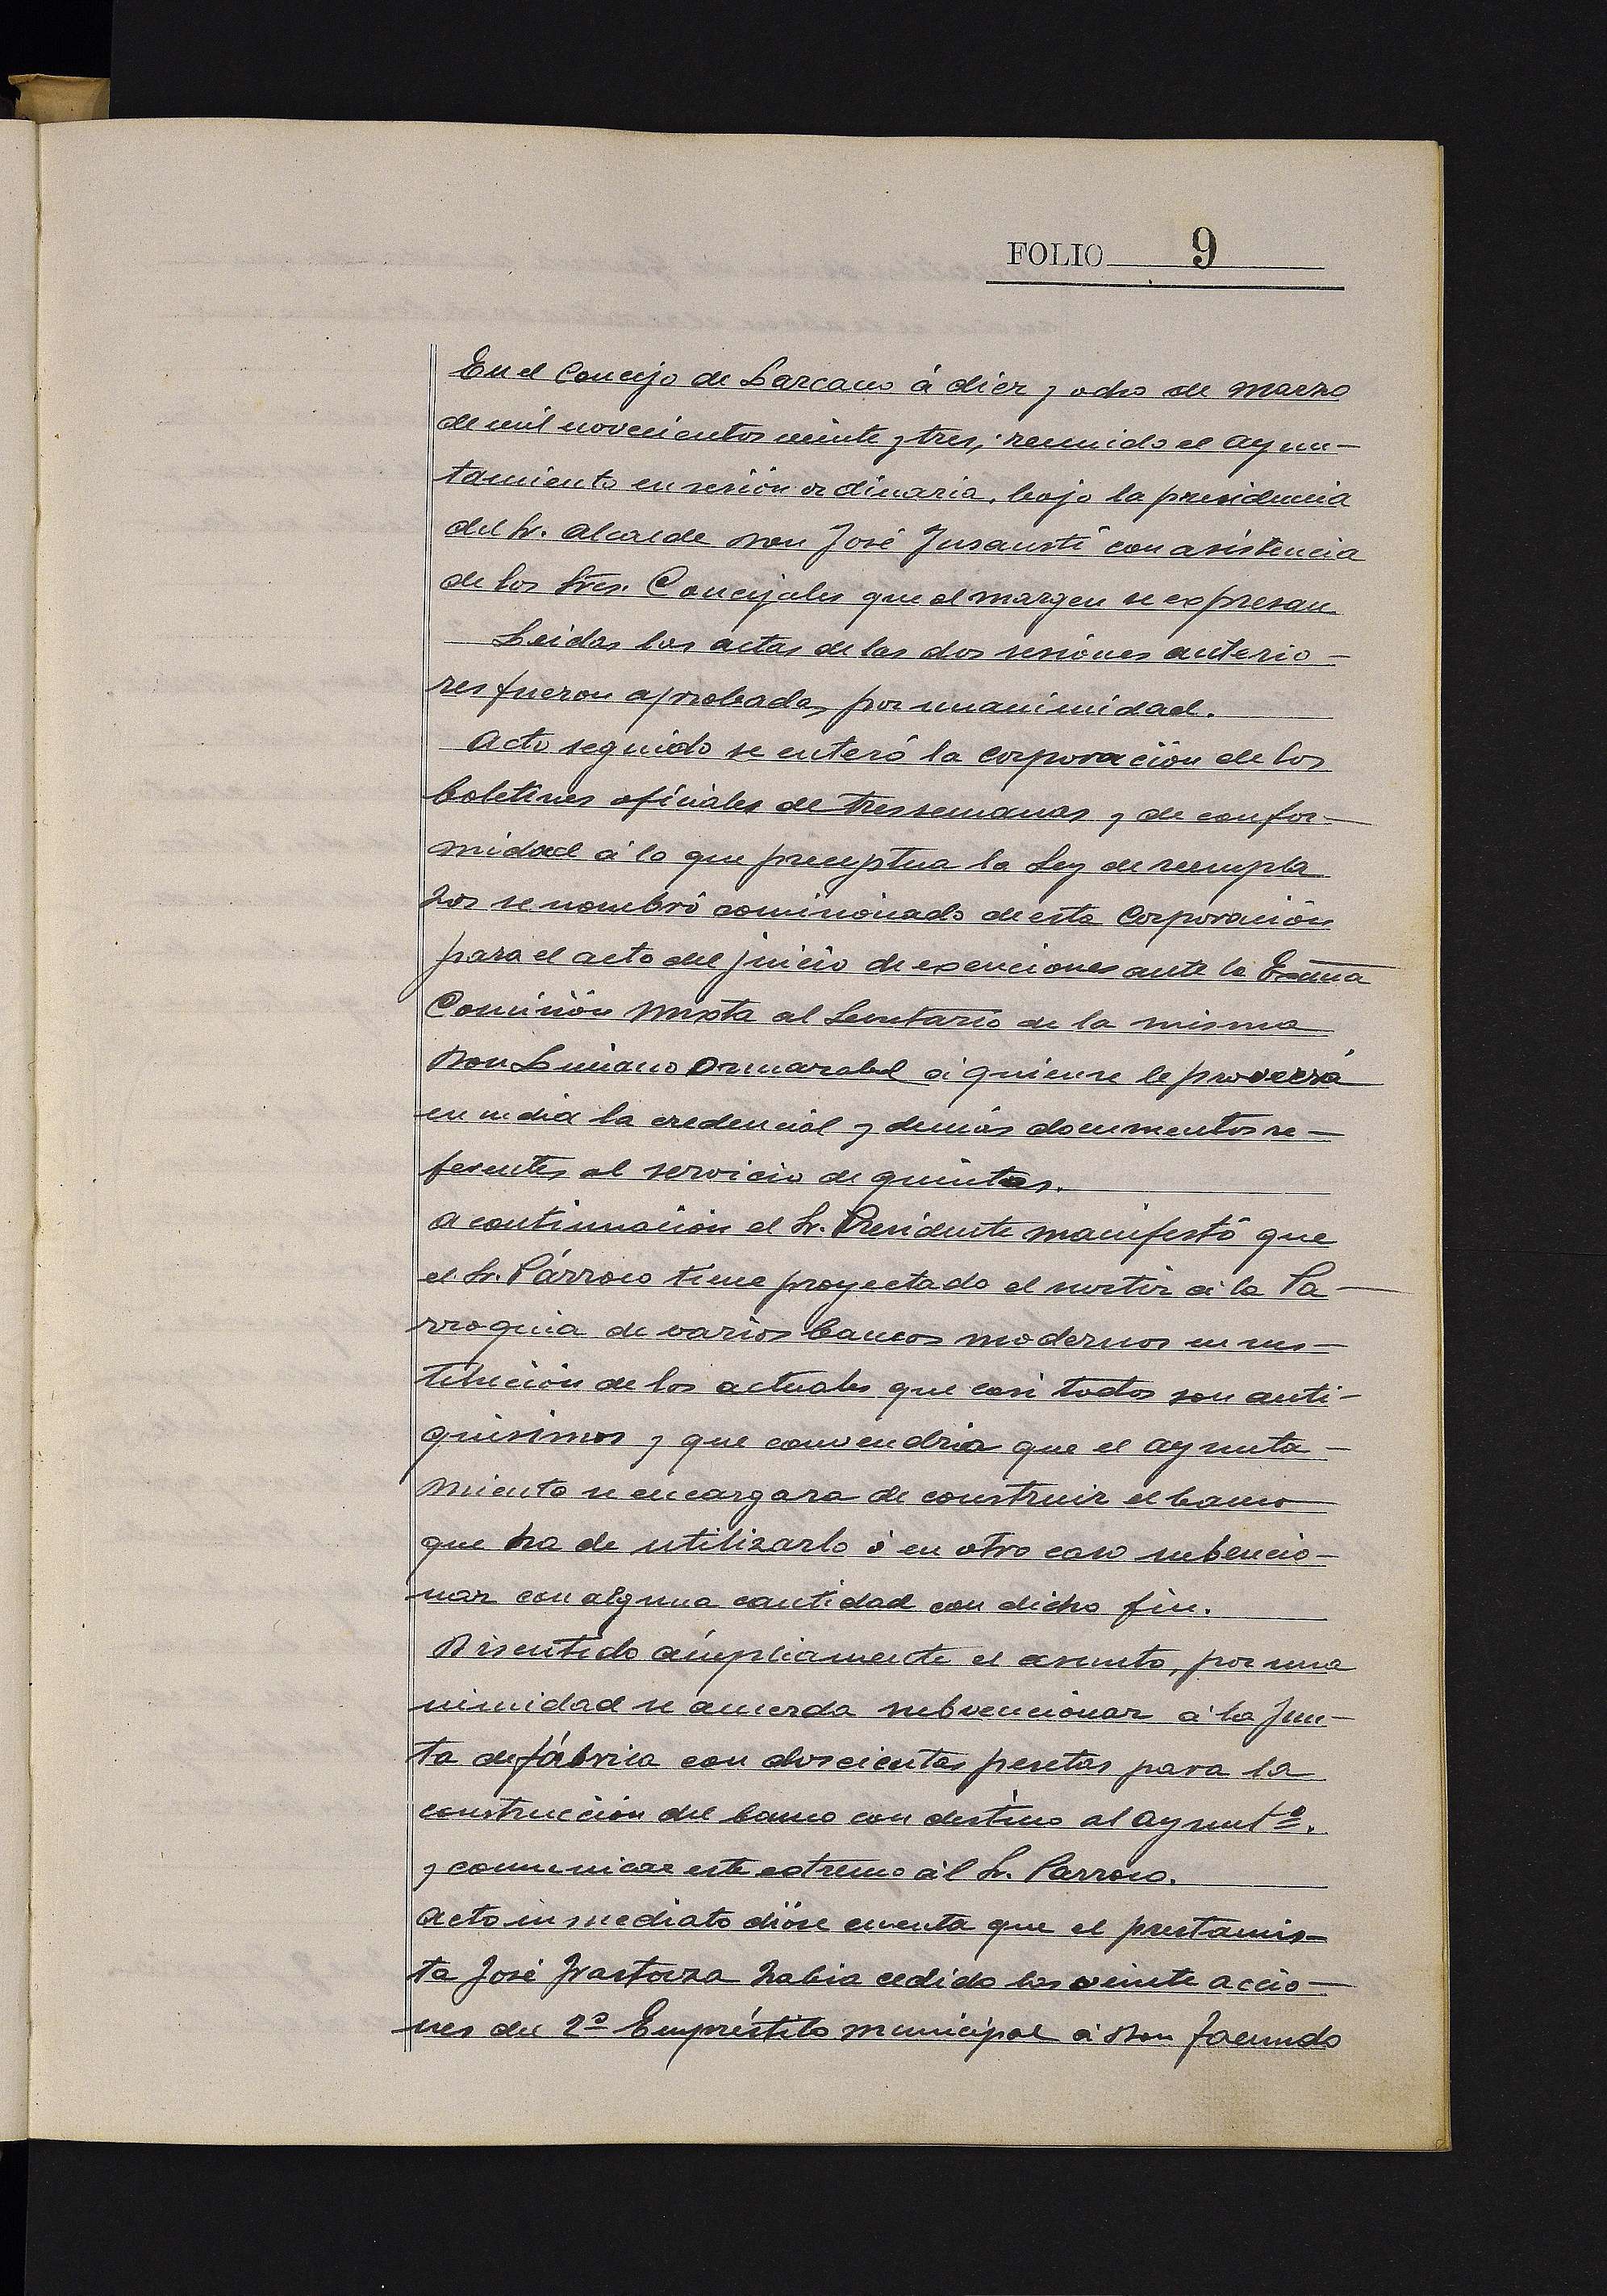 FOLIO 9
En el Concejo de Lazcano á diez y ocho de Marzo
de mil novecientos veinte y tres; reunido el ayun-
tamiento en sesión ordinaria, bajo la presidencia
del Sr. Alcalde Don José Insausti con asistencia
de los Sres. Concejales que al margen se expresan.
Leidas las actas de las dos sesiones anterio-
res fueron aprobadas por unanimidad.
Acto seguido se enteró la corporación de los
boletines oficiales de tres semanas y de confor-
midad á lo que preceptua la Ley de reempla
zos se nombró comisionado de esta Corporación
para el acto del juicio de exenciones ante la Exma
Comisión Mixta al Secretario de la misma
Don Luciano Ormazabal á quien se le proveerá
en su dia la credencial y demás documentos re-
ferentes al servicio de quintas.
A continuación el Sr. Presidente manifestó que
el Sr. Párroco tiene proyectado el surtir á la Pa-
rroquia de varios bancos modernos en sus-
titución de los actuales que casi todos son anti-
quisimos y que convendria que el ayunta-
miento se encargara de construir el banco
que ha de utilizarlo ó en otro caso subencio-
nar con alguna cantidad con dicho fin.
Discutido ámpliamente el asunto, por una
nimidad se acuerda subvencionar á la Jun-
ta de fábrica con doscientas pesetas para la
construcción del banco con destino al ayuntº.
y comunicar este extremo ál Sr. Parroco.
Acto inmediato dióse cuenta que el prestamis-
ta José Irastorza habia cedido las veinte accio-
nes del 2º Empréstito municipal á Don Facundo